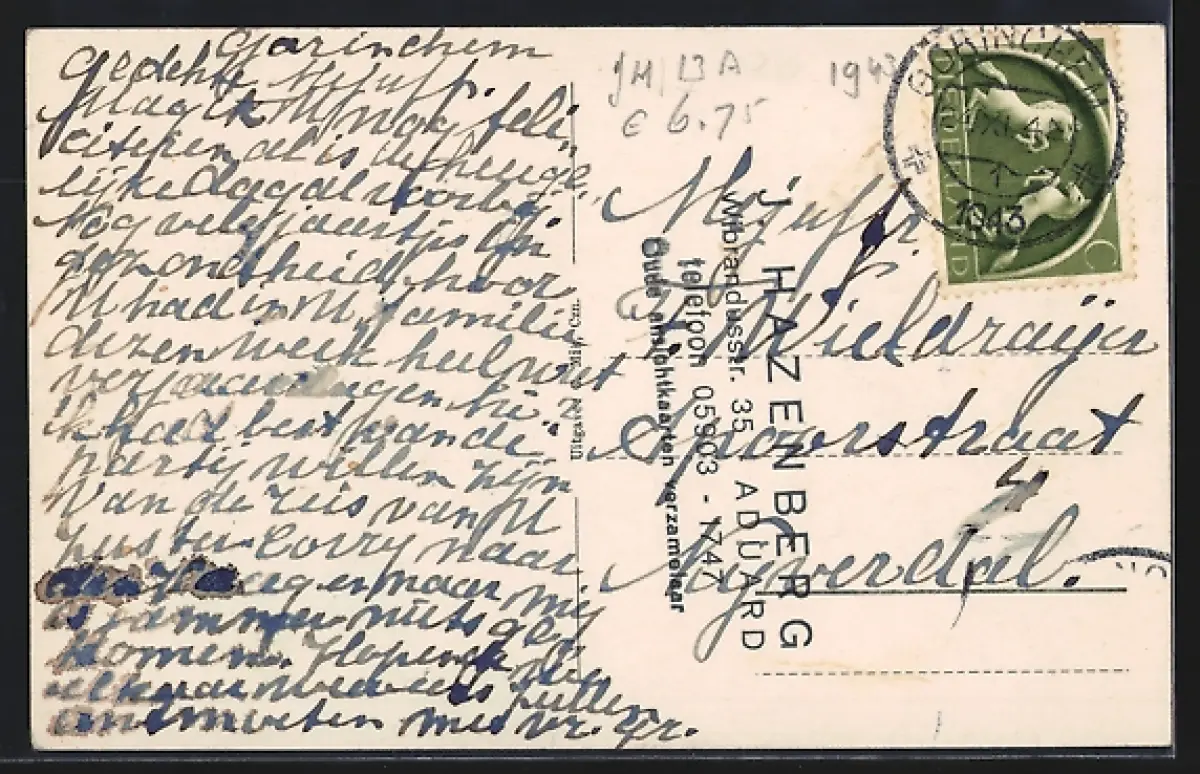 Gorinchem
Geachte Mejuff.
Mag ik U nog feli
citeren al is de heuge
lijke dag al voorbij.
Nog vele jaartjes in
gezondheid hoor
U had in U familie
dezen week heel wat
verjaardagen hè
ik had best van de
partij willen zijn
Van de reis van U
zuster Corry naar
den Haag en naar mij
is jammer niets ge
komen. Hopende dat wij
elkaar weer eens zullen
ontmoeten met vr. gr.
JH/13A
1943
€ 6.75
GORINCHEM
1943
NEDERLAND
C
Mejuffr
Wieldraaijer
Spoorstraat
4
Nijverdal.
J. HAZENBERG
Wibrandusstr. 35 ADUARD
telefoon 05903 - 1747
Oude ansichtkaarten verzamelaar